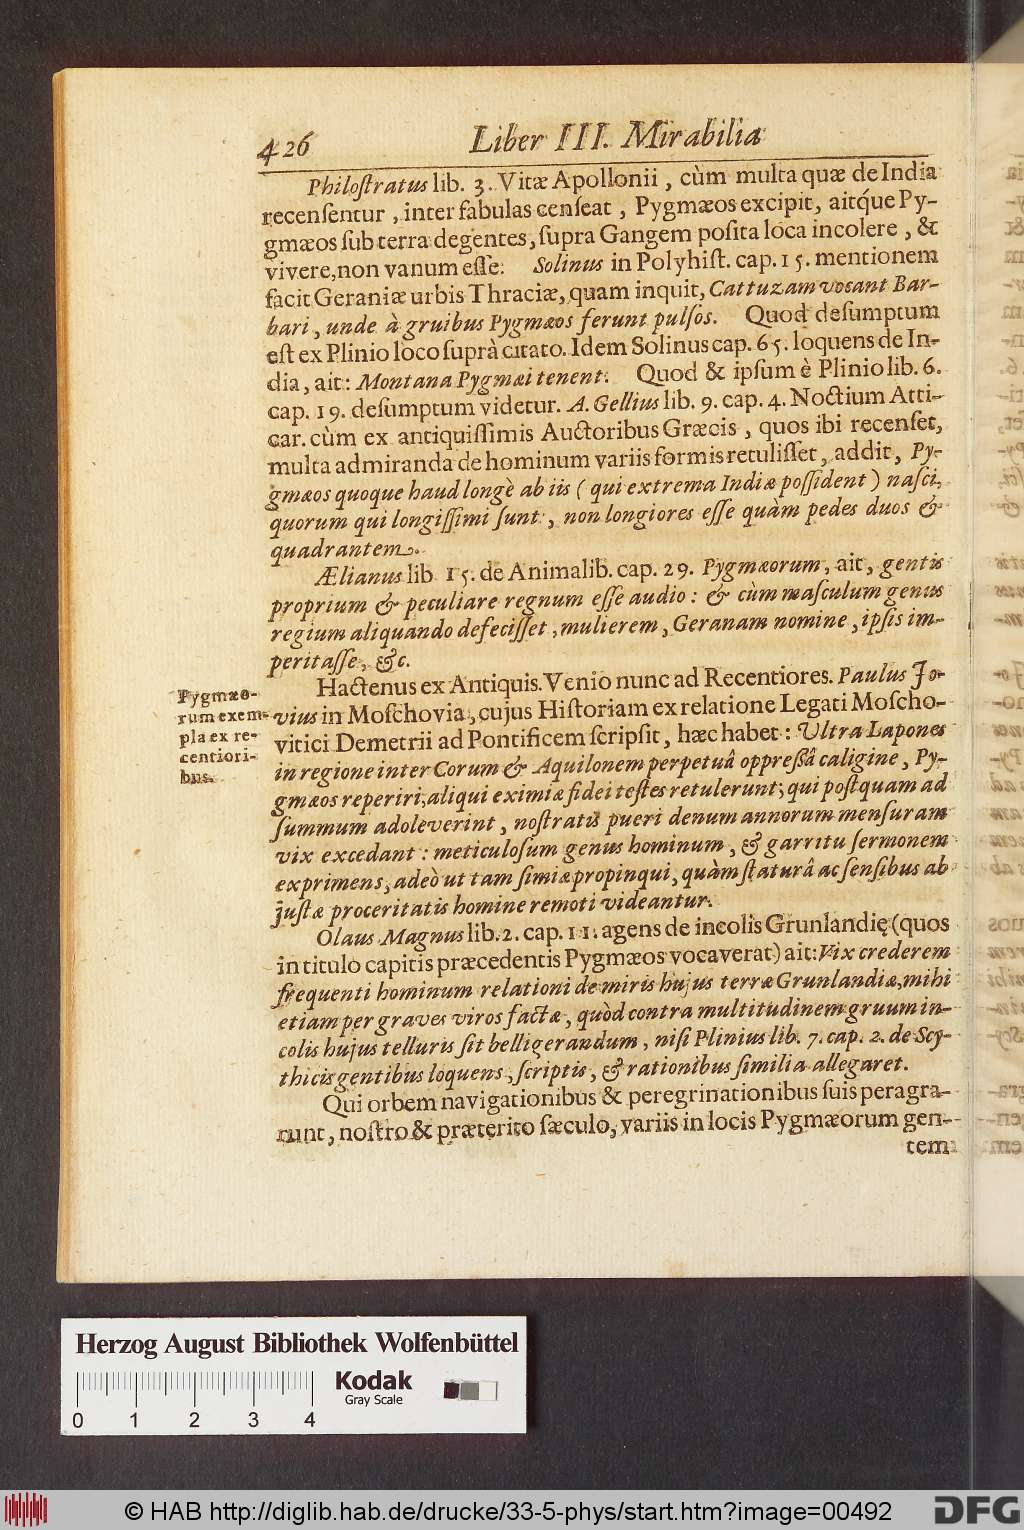 426 Liber III. Mirabilia
Philoſtratus lib. 3. Vitæ Apollonii, cùm multa quæ de India
recenſentur, inter fabulas cenſeat, Pygmæos excipit, aitq́ue Py-
gmæos ſub terra degentes, ſupra Gangem poſita loca incolere, &
vivere, non vanum eſſe. Solinus in Polyhiſt. cap. 15. mentionem
facit Geraniæ urbis Thraciæ, quam inquit, Cattuzam vocant Bar-
bari, unde à gruibus Pygmæos ferunt pulſos. Quod deſumptum
eſt ex Plinio loco ſuprà citato. Idem Solinus cap. 65. loquens de In-
dia, ait: Montana Pygmæi tenent. Quod & ipſum è Plinio lib. 6.
cap. 19. deſumptum videtur. A. Gellius lib. 9. cap. 4. Noctium Atti-
car. cùm ex antiquiſſimis Auctoribus Græcis, quos ibi recenſet,
multa admiranda de hominum variis formis retuliſſet, addit, Py-
gmæos quoque haud longè ab iis (qui extrema Indiæ poſſident) naſci,
quorum qui longiſſimi ſunt, non longiores eſſe quàm pedes duos &
quadrantem.
Ælianus lib. 15. de Animalib. cap. 29. Pygmæorum, ait, gentis
proprium & peculiare regnum eſſe audio: & cùm maſculum genus
regium aliquando defeciſſet, mulierem, Geranam nomine, ipſis im-
peritaſſe, &c.
Pygmæo-
rum exem-
pla ex re-
centiori-
bus.
Hactenus ex Antiquis. Venio nunc ad Recentiores. Paulus Jo-
vius in Moſchovia, cujus Hiſtoriam ex relatione Legati Moſcho-
vitici Demetrii ad Pontificem ſcripſit, hæc habet: Ultra Lapones
in regione inter Corum & Aquilonem perpetuâ oppreßâ caligine, Py-
gmæos reperiri, aliqui eximiæ fidei teſtes retulerunt; qui poſtquam ad
ſummum adoleverint, noſtratis pueri denum annorum menſuram
vix excedant: meticuloſum genus hominum, & garritu ſermonem
exprimens, adeò ut tam ſimiæ propinqui, quàm ſtaturâ ac ſenſibus ab
juſtæ proceritatis homine remoti videantur.
Olaus Magnus lib. 2. cap. 11. agens de incolis Grunlandię (quos
in titulo capitis præcedentis Pygmæos vocaverat) ait: Vix crederem
frequenti hominum relationi de miris hujus terræ Grunlandiæ, mihi
etiam per graves viros factæ, quòd contra multitudinem gruum in-
colis hujus telluris ſit belligerandum, niſi Plinius lib. 7. cap. 2. de Scy-
thicis gentibus loquens, ſcriptis, & rationibus ſimilia allegaret.
Qui orbem navigationibus & peregrinationibus ſuis peragra-
runt, noſtro & præterito ſæculo, variis in locis Pygmæorum gen-
tem
Herzog August Bibliothek Wolfenbüttel
Kodak
Gray Scale
0 1 2 3 4
© HAB http://diglib.hab.de/drucke/33-5-phys/start.htm?image=00492
DFG